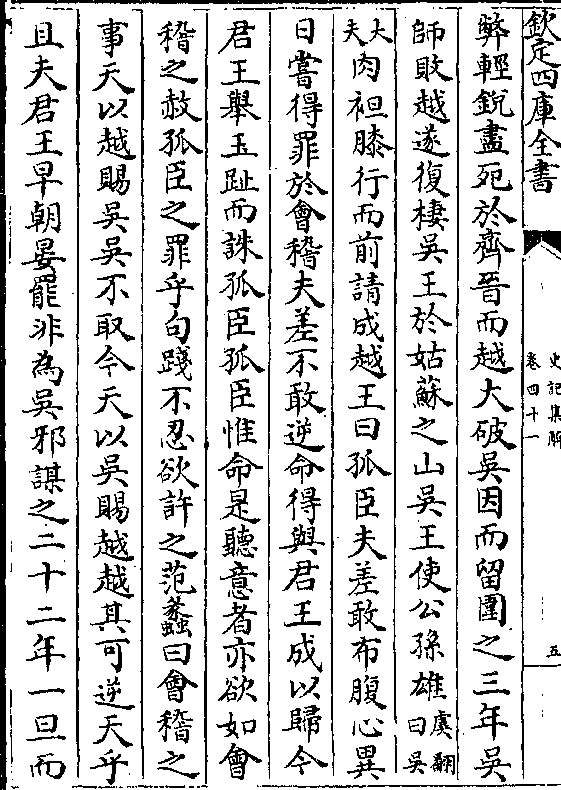 欽定四庫全書
史記集解
卷四十一
五
弊輕銳盡死於齊晉而越大破吳因而留圍之三年吳
師敗越遂復棲吳王於姑蘇之山吳王使公孫雄虞翻曰吳
大夫肉袒膝行而前請成越王曰孤臣夫差敢布腹心異
日嘗得罪於會稽夫差不敢逆命得與君王成以歸今
君王舉玉趾而誅孤臣孤臣惟命是聽意者亦欲如會
稽之赦孤臣之罪乎句踐不忍欲許之范蠡曰會稽之
事天以越賜吳吳不取今天以吳賜越越其可逆天乎
且夫君王早朝晏罷非為吳邪謀之二十二年一旦而